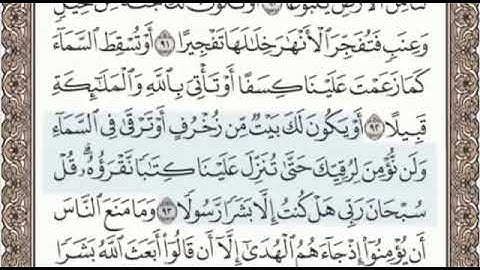 وَعِنَبٍ فَتُفَجِّرَ ٱلْأَنْهَـٰرَ خِلَـٰلَهَا تَفْجِيرًا ٩١ أَوْ تُسْقِطَ ٱلسَّمَآءَ
كَمَا زَعَمْتَ عَلَيْنَا كِسَفًا أَوْ تَأْتِىَ بِٱللَّهِ وَٱلْمَلَـٰٓئِكَةِ
قَبِيلًا ٩٢ أَوْ يَكُونَ لَكَ بَيْتٌ مِّن زُخْرُفٍ أَوْ تَرْقَىٰ فِى ٱلسَّمَآءِ
وَلَن نُّؤْمِنَ لِرُقِيِّكَ حَتَّىٰ تُنَزِّلَ عَلَيْنَا كِتَـٰبًا نَّقْرَؤُهُۥ ۗ قُلْ
سُبْحَانَ رَبِّى هَلْ كُنتُ إِلَّا بَشَرًا رَّسُولًا ٩٣ وَمَا مَنَعَ ٱلنَّاسَ
أَن يُؤْمِنُوٓا۟ إِذْ جَآءَهُمُ ٱلْهُدَىٰٓ إِلَّآ أَن قَالُوٓا۟ أَبَعَثَ ٱللَّهُ بَشَرًا